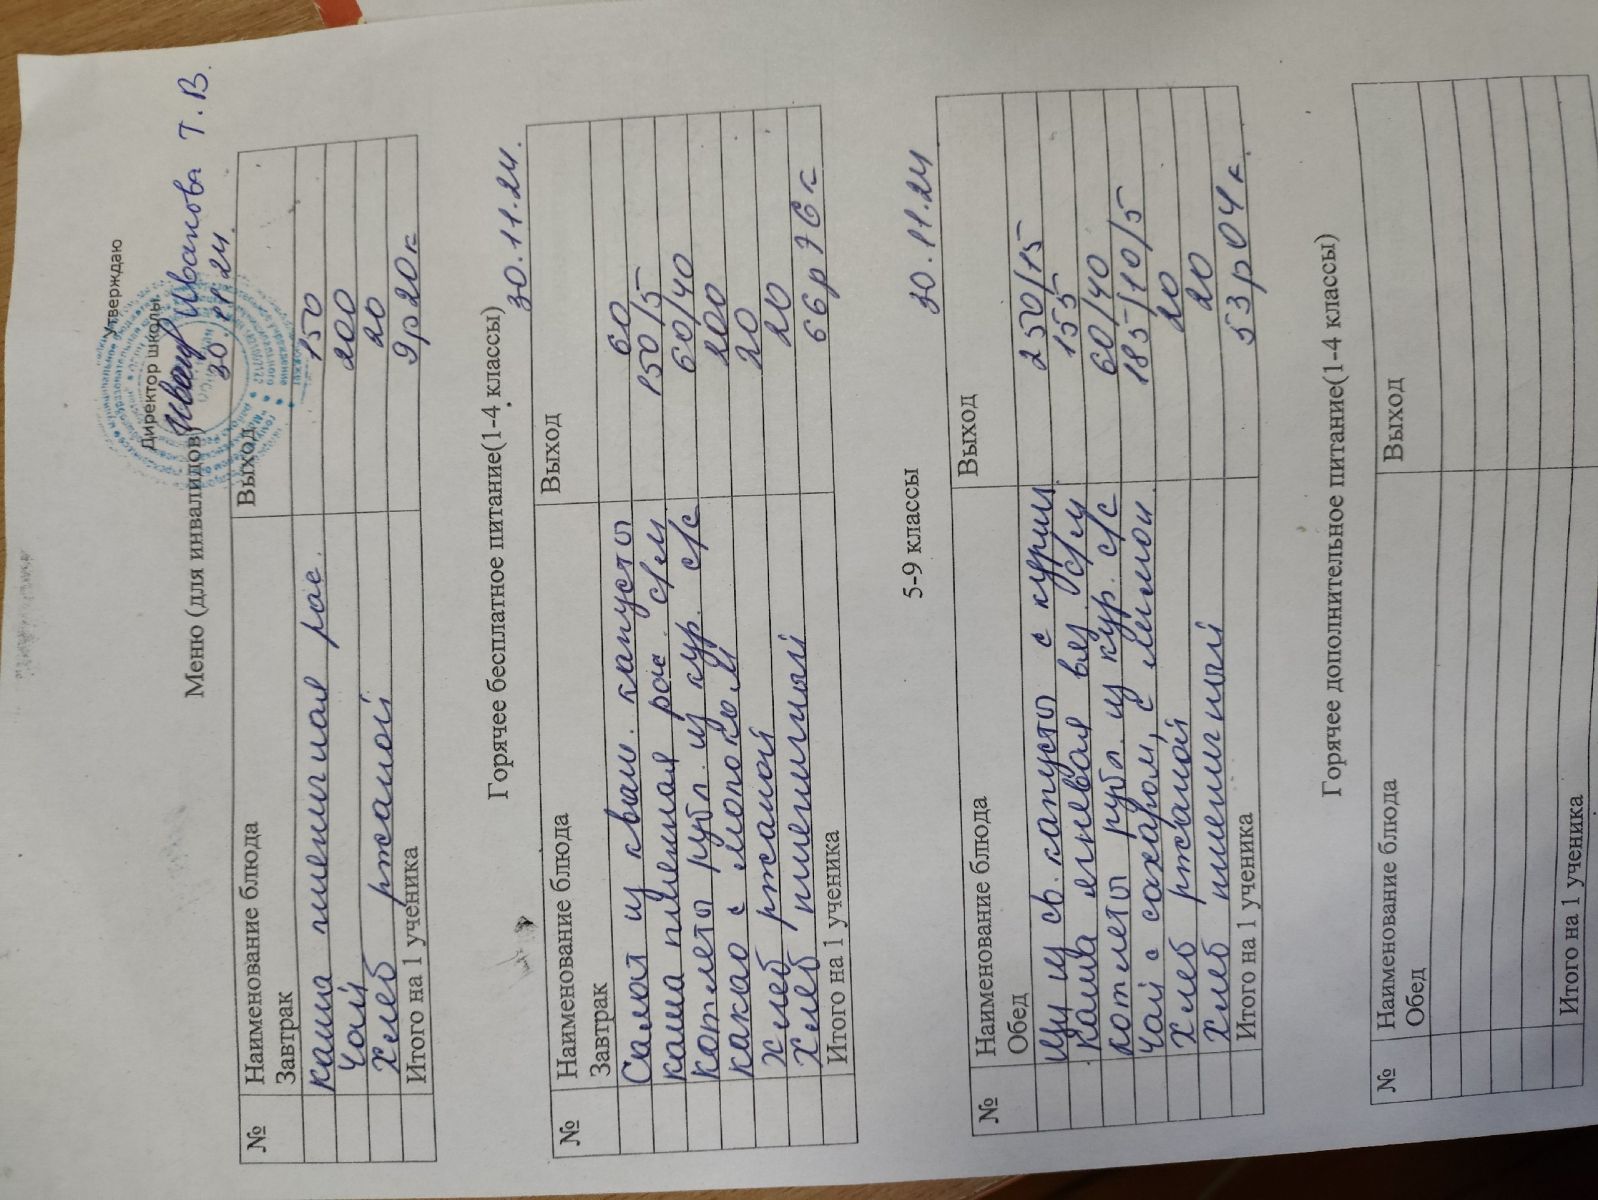 Утверждаю
Директор школы
Иванова Т.В.
Меню (для инвалидов)
30.11.24.
№ Наименование блюда Выход
Завтрак
каша пшеничная рас. 150
Чай 200
Хлеб ржаной 20
Итого на 1 ученика 9р20к
Горячее бесплатное питание(1-4 классы)
30.11.24.
№ Наименование блюда Выход
Завтрак
Салат из кваш. капусты 60
каша пшенная рас. с/м 150/5
котлеты рубл. из кур. с/с 60/40
какао с молоком 200
Хлеб ржаной 20
Хлеб пшеничный 20
Итого на 1 ученика 66р76к
5-9 классы
30.11.24
№ Наименование блюда Выход
Обед
Щи из св. капусты с куриц. 250/15
Каша ячневая вяз. с/м 155
котлеты рубл. из кур. с/с 60/40
Чай с сахаром, с лимон. 185/10/5
Хлеб ржаной 20
Хлеб пшеничный 20
Итого на 1 ученика 53р04к
Горячее дополнительное питание(1-4 классы)
№ Наименование блюда Выход
Обед
Итого на 1 ученика